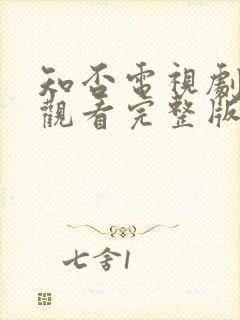 知否電視劇
觀看完整版
七舍1